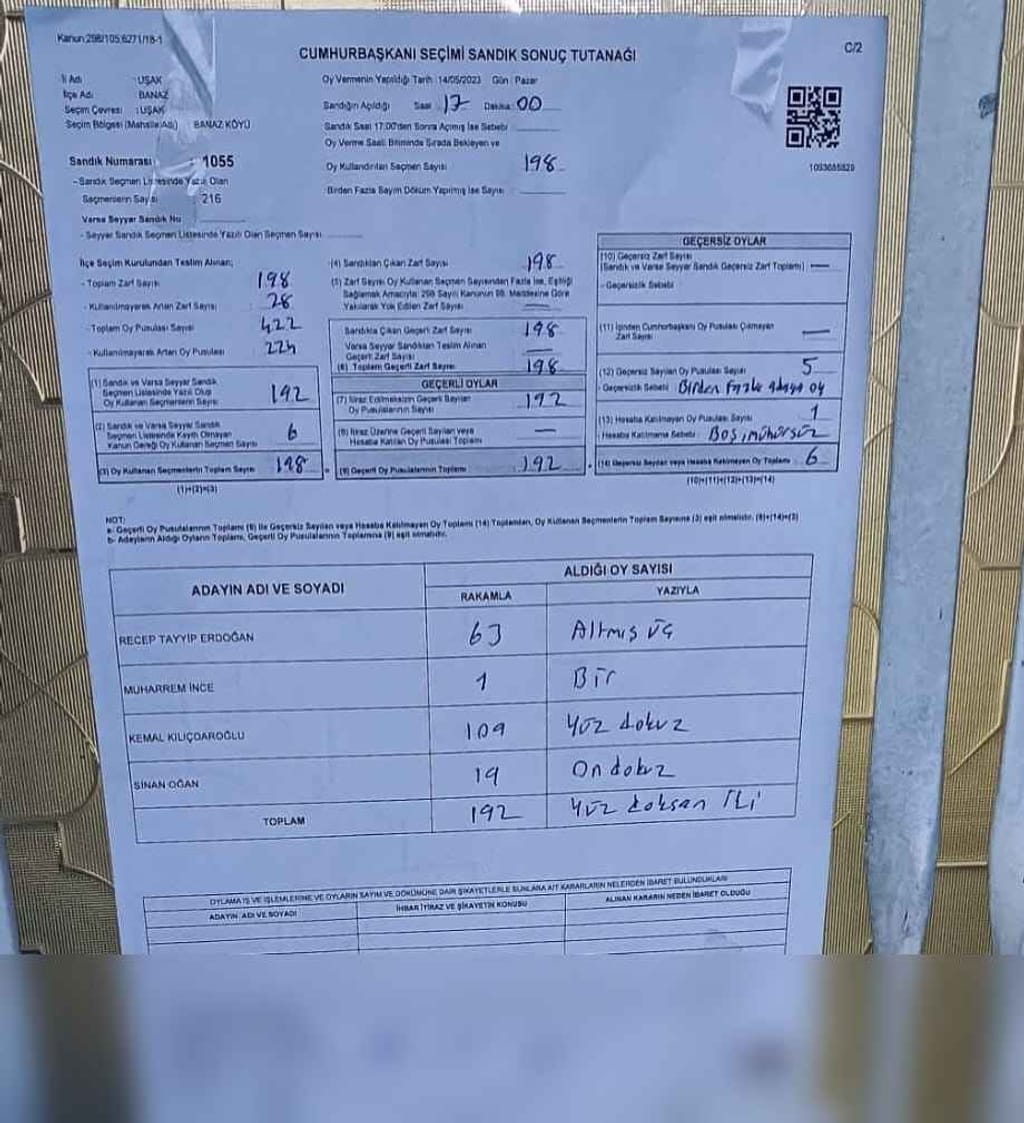 Kanun:298/105,6271/18-1
C/2
CUMHURBAŞKANI SEÇİMİ SANDIK SONUÇ TUTANAĞI
İl Adı : UŞAK
İlçe Adı : BANAZ
Seçim Çevresi : UŞAK
Seçim Bölgesi (Mahalle Adı) BANAZ KÖYÜ
Sandık Numarası : 1055
- Sandık Seçmen Listesinde Yazılı Olan
Seçmenlerin Sayısı : 216
Varsa Seyyar Sandık No
- Seyyar Sandık Seçmen Listesinde Yazılı Olan Seçmen Sayısı
Oy Vermenin Yapıldığı Tarih :14/05/2023 Gün : Pazar
Sandığın Açıldığı Saat : 17 Dakika: 00
Sandık Saat 17:00'den Sonra Açılmış İse Sebebi
Oy Verme Saati Bitiminde Sırada Bekleyen ve
Oy Kullandırılan Seçmen Sayısı 198
Birden Fazla Sayım Döküm Yapılmış İse Sayısı
İlçe Seçim Kurulundan Teslim Alınan;
- Toplam Zarf Sayısı 198
- Kullanılmayarak Artan Zarf Sayısı 28
- Toplam Oy Pusulası Sayısı 422
- Kullanılmayarak Artan Oy Pusulası 224
(1) Sandık ve Varsa Seyyar Sandık
Seçmen Listesinde Yazılı Olup
Oy Kullanan Seçmenlerin Sayısı 192
(2) Sandık ve Varsa Seyyar Sandık
Seçmen Listesinde Kayıtlı Olmayan
Kanun Gereği Oy Kullanan Seçmen Sayısı 6
(3) Oy Kullanan Seçmenlerin Toplam Sayısı 198
(1)+(2)=(3)
(4) Sandıktan Çıkan Zarf Sayısı 198
(5) Zarf Sayısı Oy Kullanan Seçmen Sayısından Fazla İse, Eşitliği
Sağlamak Amacıyla 298 Sayılı Kanunun 98. Maddesine Göre
Yakılarak Yok Edilen Zarf Sayısı —
Sandıkta Çıkan Geçerli Zarf Sayısı 198
Varsa Seyyar Sandıktan Teslim Alınan
Geçerli Zarf Sayısı —
(6) Toplam Geçerli Zarf Sayısı 198
GEÇERLİ OYLAR
(7) İtiraz Edilmeksizin Geçerli Sayılan
Oy Pusulalarının Sayısı 192
(8) İtiraz Üzerine Geçerli Sayılan veya
Hesaba Katılan Oy Pusulası Toplamı —
(9) Geçerli Oy Pusulalarının Toplamı 192
1093685829
GEÇERSİZ OYLAR
(10) Geçersiz Zarf Sayısı
(Sandık ve Varsa Seyyar Sandık Geçersiz Zarf Toplamı) —
- Geçersizlik Sebebi
(11) İçinden Cumhurbaşkanı Oy Pusulası Çıkmayan
Zarf Sayısı —
(12) Geçersiz Sayılan Oy Pusulası Sayısı 5
- Geçersizlik Sebebi Birden Fazla adaya oy
(13) Hesaba Katılmayan Oy Pusulası Sayısı 1
- Hesaba Katılmama Sebebi Boş, mühürsüz
(14) Geçersiz Sayılan veya Hesaba Katılmayan Oy Toplamı 6
(10)+(11)+(12)+(13)=(14)
NOT:
a- Geçerli Oy Pusulalarının Toplamı (9) ile Geçersiz Sayılan veya Hesaba Katılmayan Oy Toplamı (14) Toplamları, Oy Kullanan Seçmenlerin Toplam Sayısına (3) eşit olmalıdır. (9)+(14)=(3)
b- Adayların Aldığı Oyların Toplamı, Geçerli Oy Pusulalarının Toplamına (9) eşit olmalıdır.
ADAYIN ADI VE SOYADI ALDIĞI OY SAYISI
RAKAMLA YAZIYLA
RECEP TAYYİP ERDOĞAN 63 Altmış üç
MUHARREM İNCE 1 Bir
KEMAL KILIÇDAROĞLU 109 Yüz dokuz
SİNAN OĞAN 19 On dokuz
TOPLAM 192 Yüz doksan iki
OYLAMA İŞ VE İŞLEMLERİNE VE OYLARIN SAYIM VE DÖKÜMÜNE DAİR ŞİKAYETLERLE BUNLARA AİT KARARLARIN NELERDEN İBARET BULUNDUKLARI
ADAYIN ADI VE SOYADI İHBAR İTİRAZ VE ŞİKAYETİN KONUSU ALINAN KARARIN NEDEN İBARET OLDUĞU